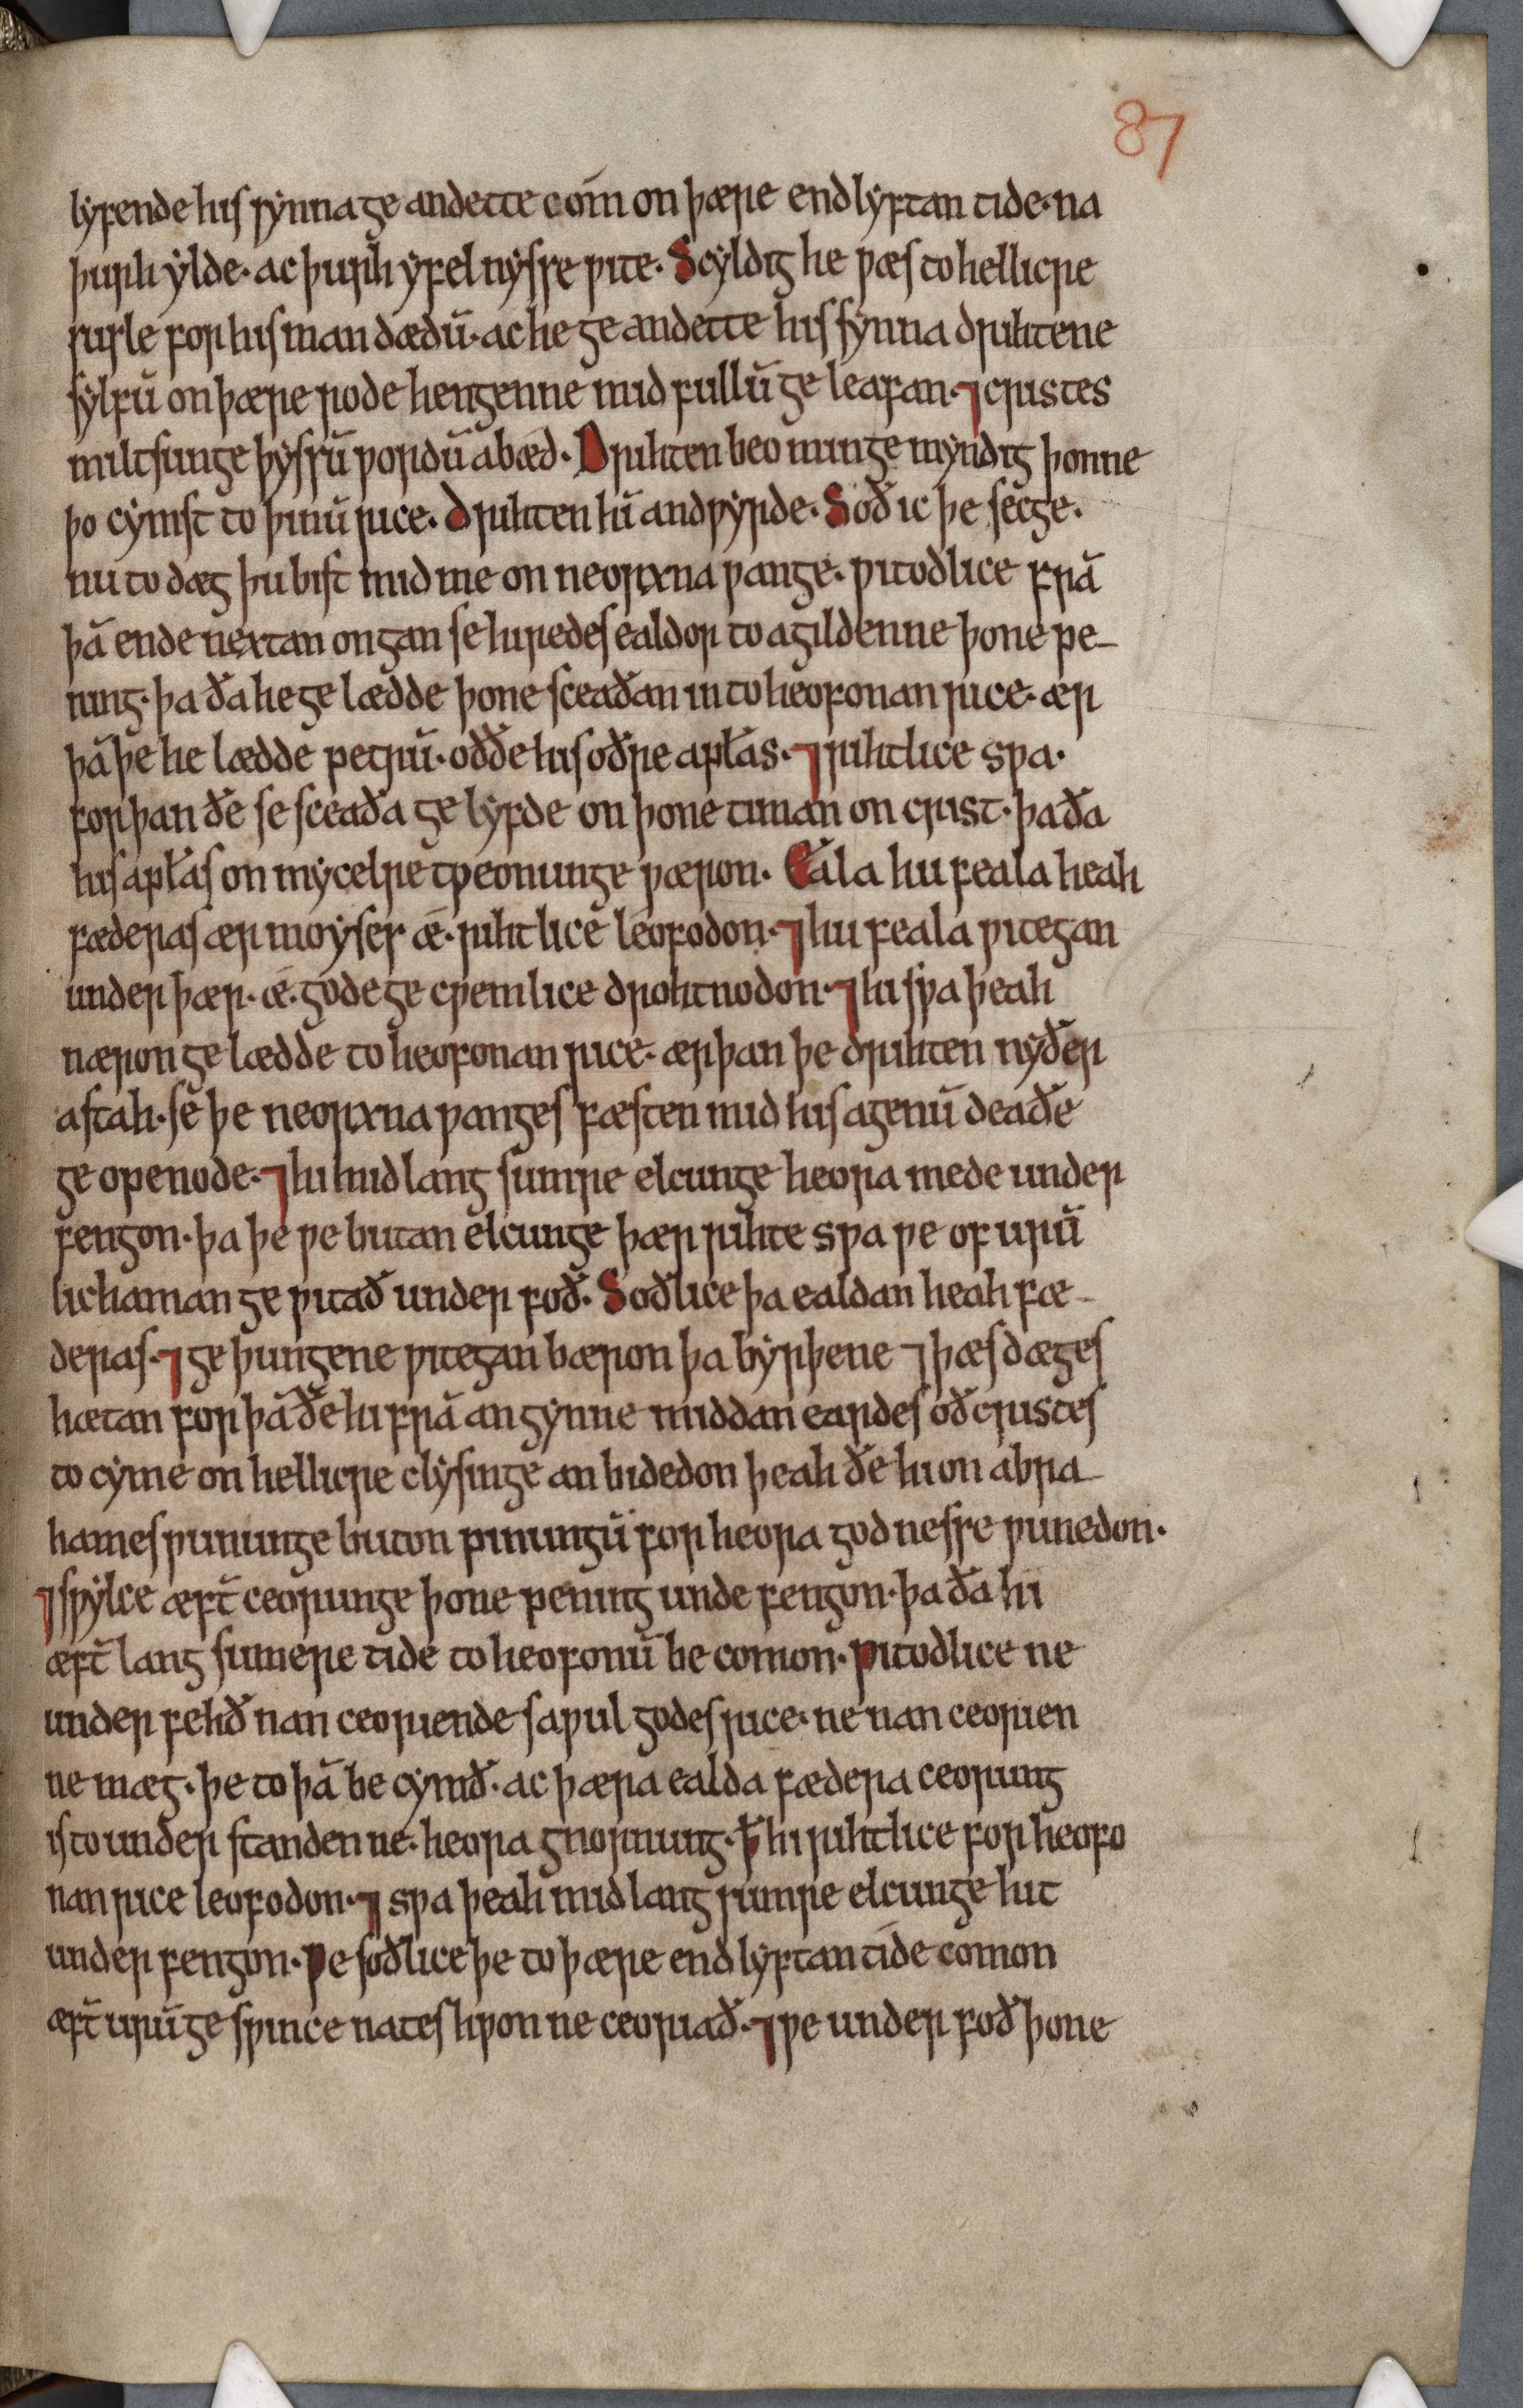 87
lyfende his synna ge andette cóm on þære endlyftan tide· na
þurh ylde· ac þurh yfelnysse ƿite· Scyldig he ƿæs to hellicre
susle for his mandædū· ac he ge andette his synna drihtene
sylfū on þære rode hengenne mid fullū ge leafan· ⁊ cristes
miltsunge þysſū ƿordū abæd· Drihten beo min ge myndig þonne
þo cymst to þinū rice· Drihten hī andƿyrde· Soð ic þe secge·
nu to dæg þu bist mid me on neorxna ƿange· ƿitodlice frā
þā endenextan ongan se hiredes ealdor to agildenne þone pe-
ning· þa ða he ge lædde þone sceaðan in to heofonan rice· ær
þā þe he lædde petrū· oððe his oðre apłas· ⁊ rihtlice sƿa·
for þan ðe se sceaða ge lyfde on þone timan on crist· þa ða
his apłas on mycelre tƿeonunge ƿæron· Eala hu feala heah
fæderas ær moyses ǽ· rihtlice leofodon· ⁊ hu feala ƿitegan
under þær· ǽ· gode ge cƿemlice drohtnodon· ⁊ hi sƿa þeah
næron ge lædde to heofonan rice· ær þan þe drihten nyðer
astah· se þe neorxna ƿanges fæsten mid his agenū deaðe
ge openode· ⁊ hi mid langsumre elcunge heora mede under
fengon· þa þe ƿe butan elcunge þær rihte sƿa ƿe of urū
lichaman ge ƿitað under foð· Soðlice þa ealdan heah fæ-
deras· ⁊ ge þungene ƿitegan bæron þa byrþene ⁊ þæs dæges
hætan for þā ðe hi frā angynne middan eardes oð cristes
to cyme on hellicre clysinge anbidedon þeah ðe hi on abra-
hames ƿununge buton pinungū for heora godnesse ƿunedon·
⁊ sƿylce æft̄ ceorunge þone pening unde fengon· þa ða hi
æft̄ lang sumere tide to heofonū be comon· Ƿitodlice ne
under fehð nan ceoriende saƿul godes rice· ne nan ceorien
ne mæg· þe to þā be cymð· ac þæra ealda fædera ceorung
is to under standenne· heora gnornung· ꝥ hi rihtlice for heofo
nan rice leofodon· ⁊ sƿa þeah mid lang sumre elcunge hit
under fengon· Ƿe soðlice þe to þære endlyftan tide comon
æft̄ urū ge sƿince nates hƿon ne ceoriað· ⁊ ƿe under foð þone